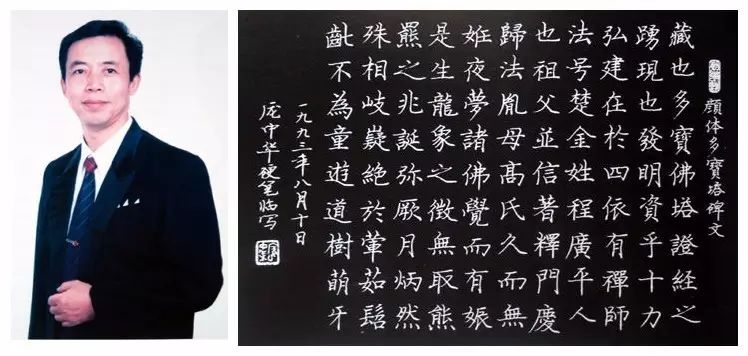 顏体多寶塔碑文
藏也多寶佛塔證經之
踴現也發明資乎十力
弘建在於四依有禪師
法号楚金姓程廣平人
也祖父並信著釋門慶
歸法胤母髙氏久而無
姙夜夢諸佛覺而有娠
是生龍象之徵無取熊
羆之兆誕弥厥月炳然
殊相岐嶷絶於葷茹髫
齔不為童遊道樹萌牙
一九九三年八月十日
庞中华硬笔临写